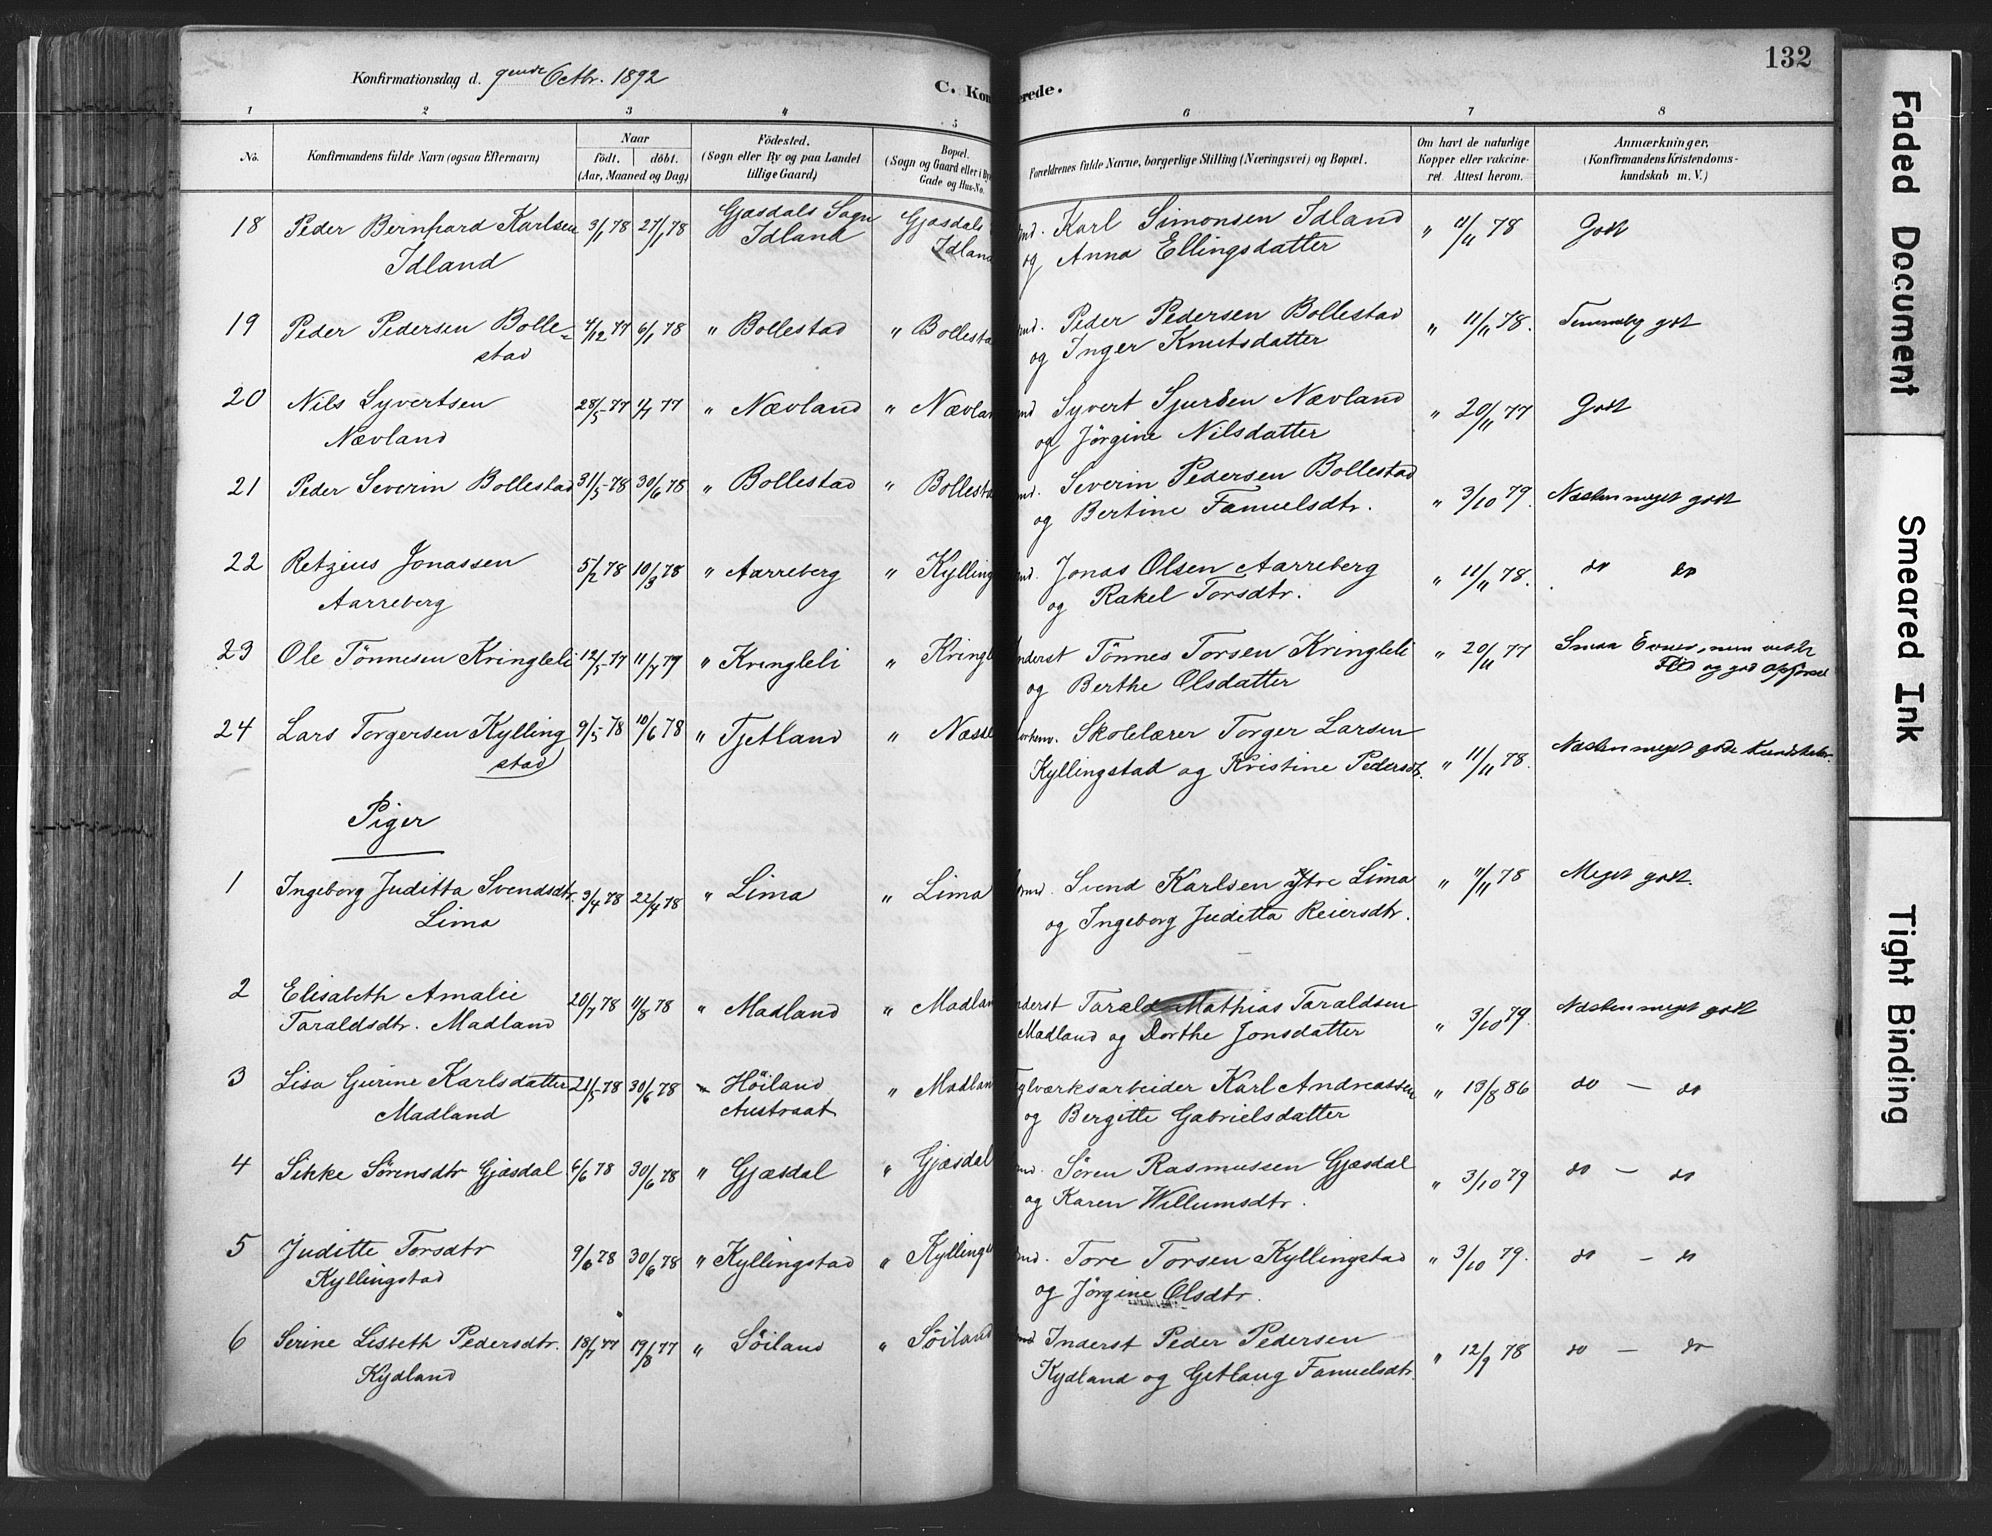 132
Konfirmationsdag d. 9ende Octbr. 1892
C. Kon erede.
1 2 3 4 5 6 7 8
No. Konfirmandens fulde Navn (ogsaa Efternavn) Naar födt. döbt. (Aar, Maaned og Dag) Födested. (Sogn eller By og paa Landet tillige Gaard) Bopæl. (Sogn og Gaard eller i By Gade og Hus-No. Forældrenes fulde Navne, borgerlige Stilling (Næringsvei) og Bopæl. Om havt de naturlige Kopper eller vakcineret. Attest herom. Anmærkninger, (Konfirmandens Kristendomskundskab m. V.)
18 Peder Bernhard Karlsen 3/1 78 27/1 78 Gjæsdals Sogn Gjæsdals md. Karl Simonsen Idland " 11/11 78 Godt
Idland Idland Idland og Anna Ellingsdatter
19 Peder Pedersen Bolle- 4/12 77 6/1 78 " Bollestad " Bollesta md. Peder Pedersen Bollestad " 11/11 78. Temmelig godt
stad og Inger Knutsdatter
20 Nils Syvertsen 28/5 77 1/7 77 " Nævland " Nævlan md Syvert Sjursen Nævland " 20/11 77 Godt
Nævland og Jörgine Nilsdatter
21 Peder Severin Bollestad 31/5 78 30/6 78 " Bollestad " Bollesta md. Severin Pedersen Bollestad " 3/10 79. Næsten meget godt
og Bertine Famuelsdtr.
22 Retzius Jonassen 5/2 78 10/3 78 " Aarreberg " Kylling md. Jonas Olsen Aarreberg " 11/11 78. do do
Aarreberg og Rakel Torsdtr.
23 Ole Tönnesen Kringleli 12/5 77 11/7 79 " Kringleli " Kringl nderst Tönnes Torsen Kringleli " 20/11 77 Smaa Evner, men
og Berthe Olsdatter Flid og god Opførsel
24 Lars Torgersen Kylling 9/5 78 10/6 78 " Tjetland " Næsse Skolelærer Torger Larsen
stad Kyllingstad og Kristine Pedersdtr. " 11/11 78. Næsten meget gode Kundskaber.
Piger
1 Ingeborg Juditta Svendsdtr. 3/4 78 22/4 78 " Lima " Lima md. Svend Karlsen Ytre Lima " 11/11 78 Meget godt.
Lima og Ingeborg Juditta Reiersdtr.
2 Elisabeth Amalie 20/7 78 11/8 78 " Madland " Madlan nderst Tarald Mathias Taraldsen Næsten meget godt
Taraldsdtr. Madland Madland og Dorthe Jonsdatter " 3/10 79.
3 Lisa Gurine Karlsdatter 21/5 78 30/6 78 " Höiland " Madlan glværksarbeider Karl Andreassen " 13/8 86 do - do
Madland Austraat og Bergitte Gabrielsdatter
4 Sikke Sörensdtr Gjæsdal 6/6 78 30/6 78 " Gjæsdal " Gjæsdal md. Sören Rasmussen Gjæsdal " 3/10 79 do - do
og Karen Willumsdtr.
5 Juditte Torsdtr 9/6 78 30/6 78 " Kyllingstad " Kyllings md. Tore Torsen Kyllingstad " 3/10 79. do - do
Kyllingstad og Jörgine Olsdtr.
6 Serine Lisbeth Pedersdtr. 18/7 77 19/8 77 " Söiland " Söiland Inderst Peder Pedersen " 12/9 78 do - do
Kydland Kydland og Getlaug Famuelsdtr.
Faded Document
Smeared Ink
Tight Binding